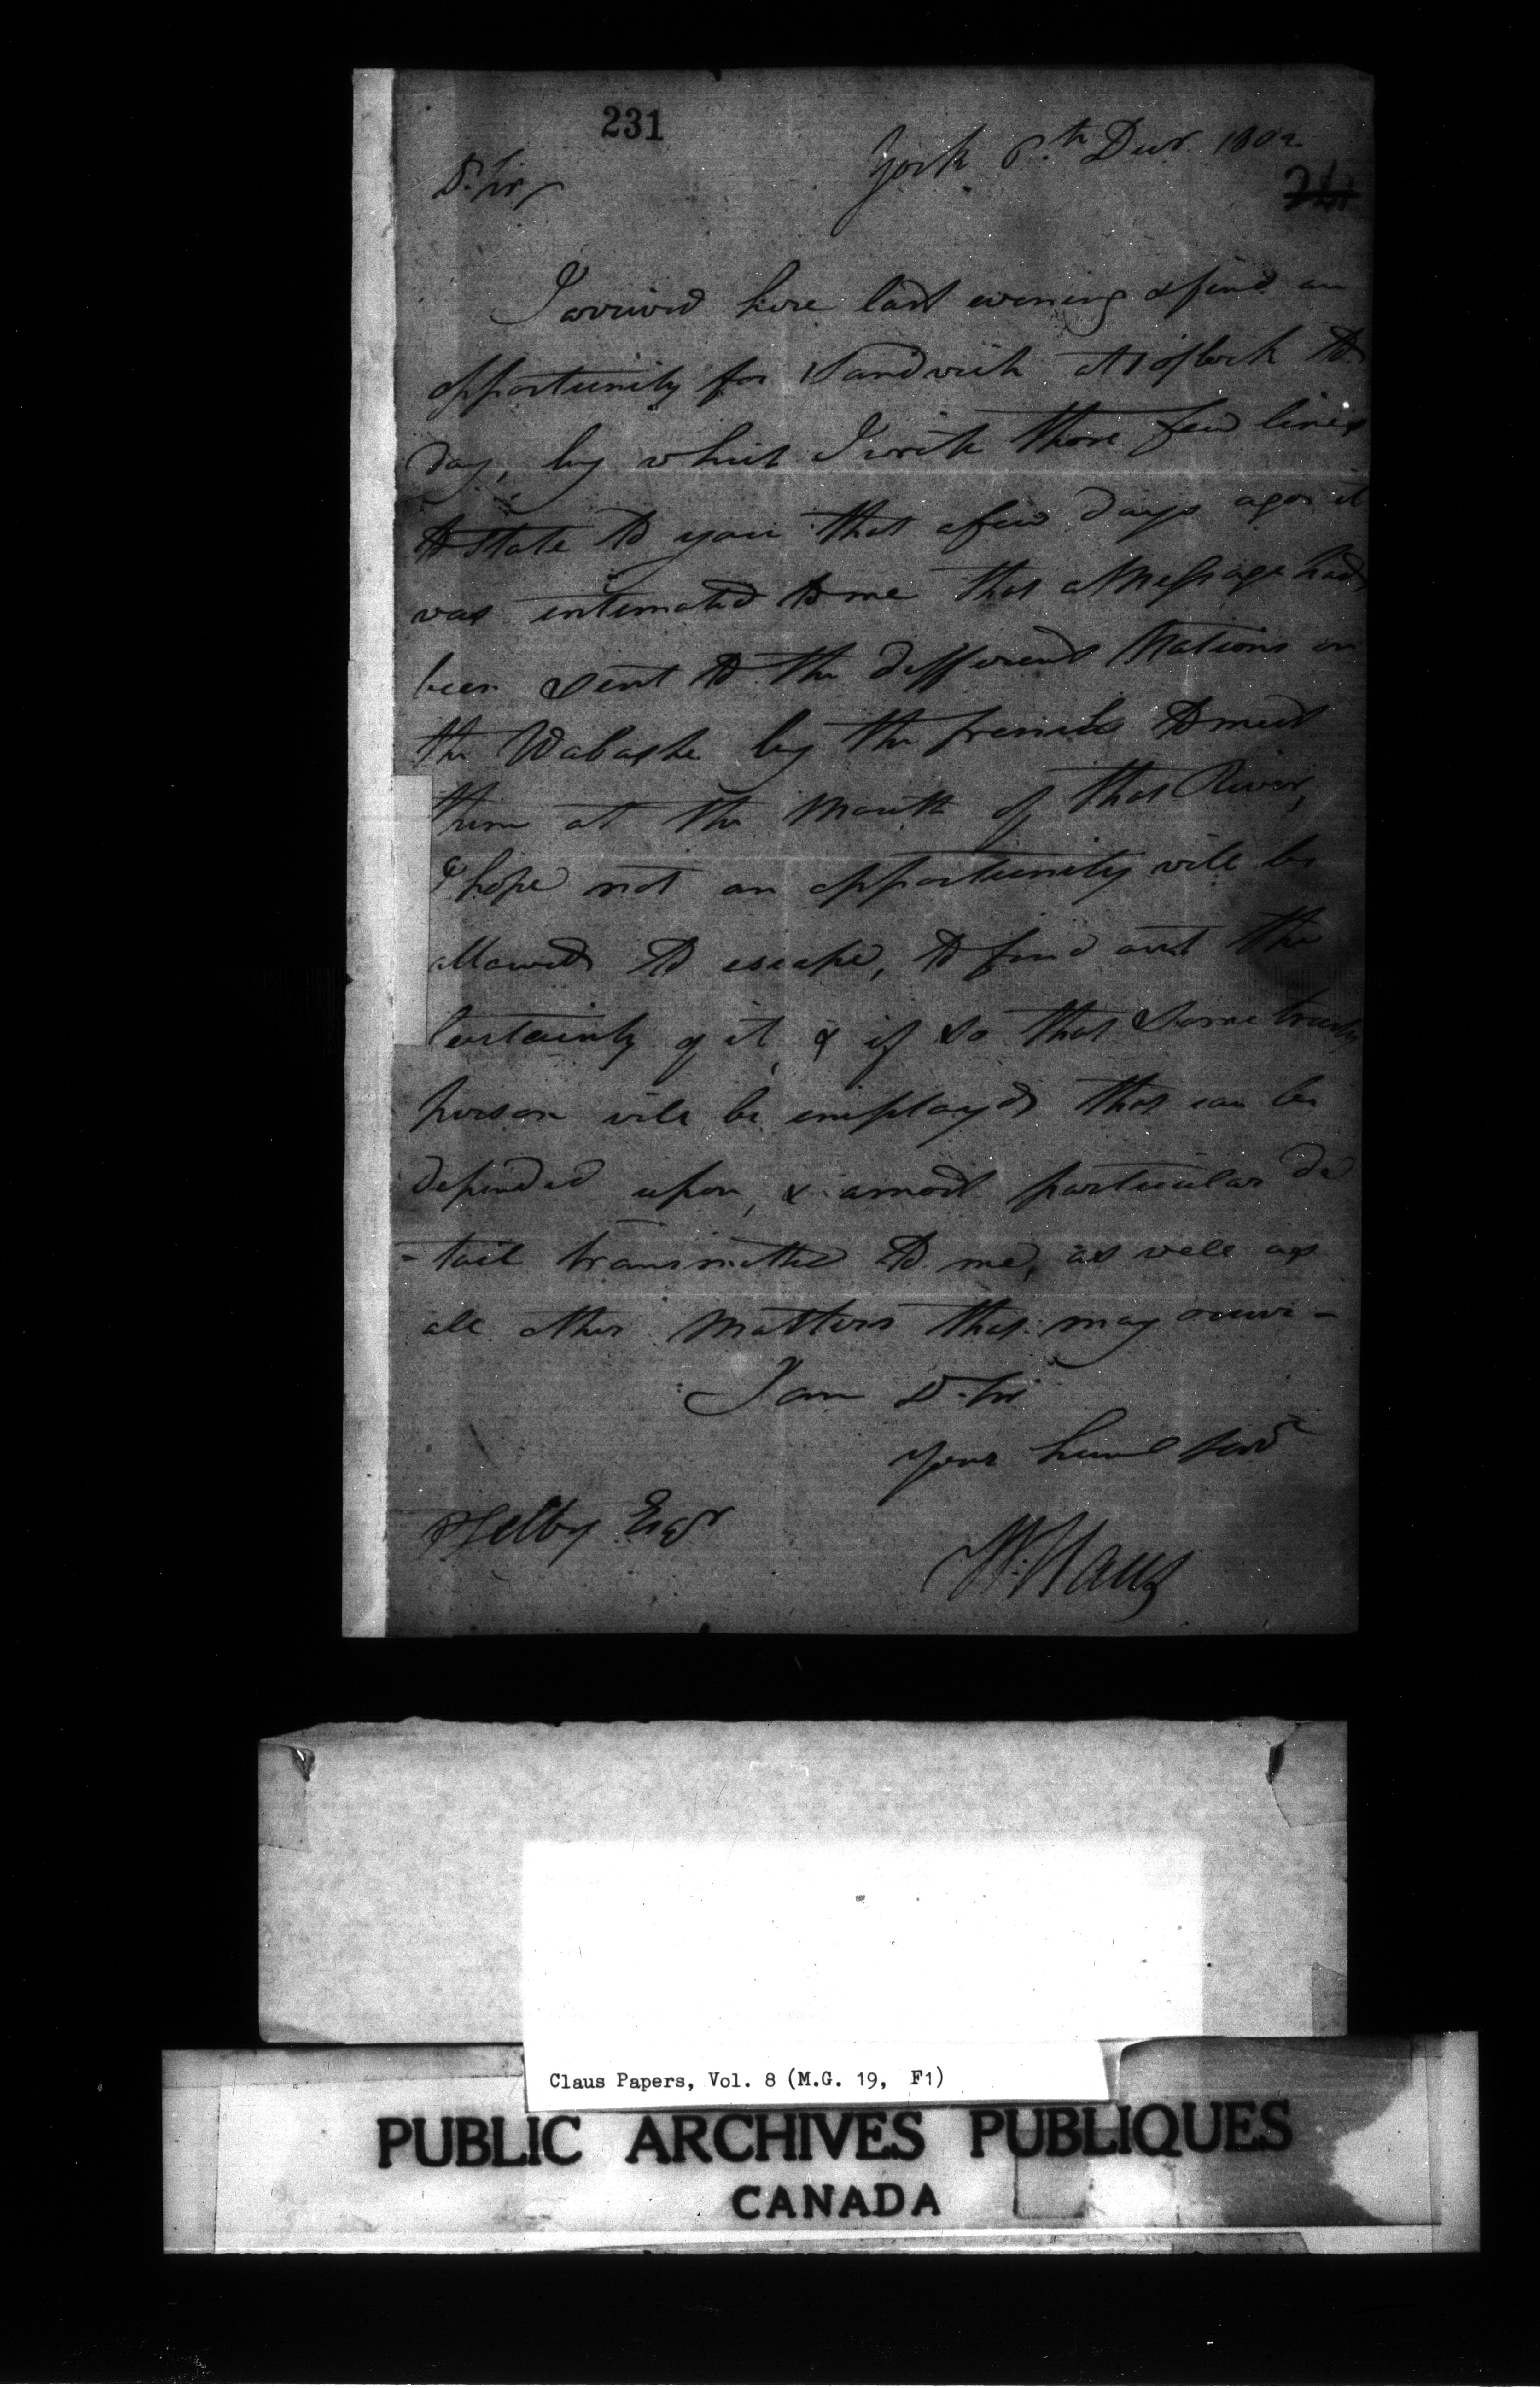 231
York 6th Decr. 1802
D. Sir,
241
I arrived here last evening & find an
opportunity for Sandwich at 1 oClock to
day, by which I write these few lines
to state to you that a few days ago it
was intimated to me that a Message had
been sent to the different Nations on
the Wabashe by the french to meet
them at the Mouth of that River,
I hope not an opportunity will be
allowed to escape, to find out the
Certainty of it, & if so that some trusty
person will be employed that can be
depended upon, & a most particular de
-tail transmitted to me, as well as
all other Matters that may occur -
I am D. Sir
your huml Servt
W. Claus
Selby Esqr
Claus Papers, Vol. 8 (M.G. 19, F1)
PUBLIC ARCHIVES PUBLIQUES
CANADA